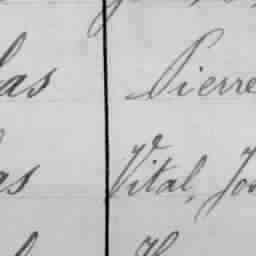 as Pierre
as Vital, Jos